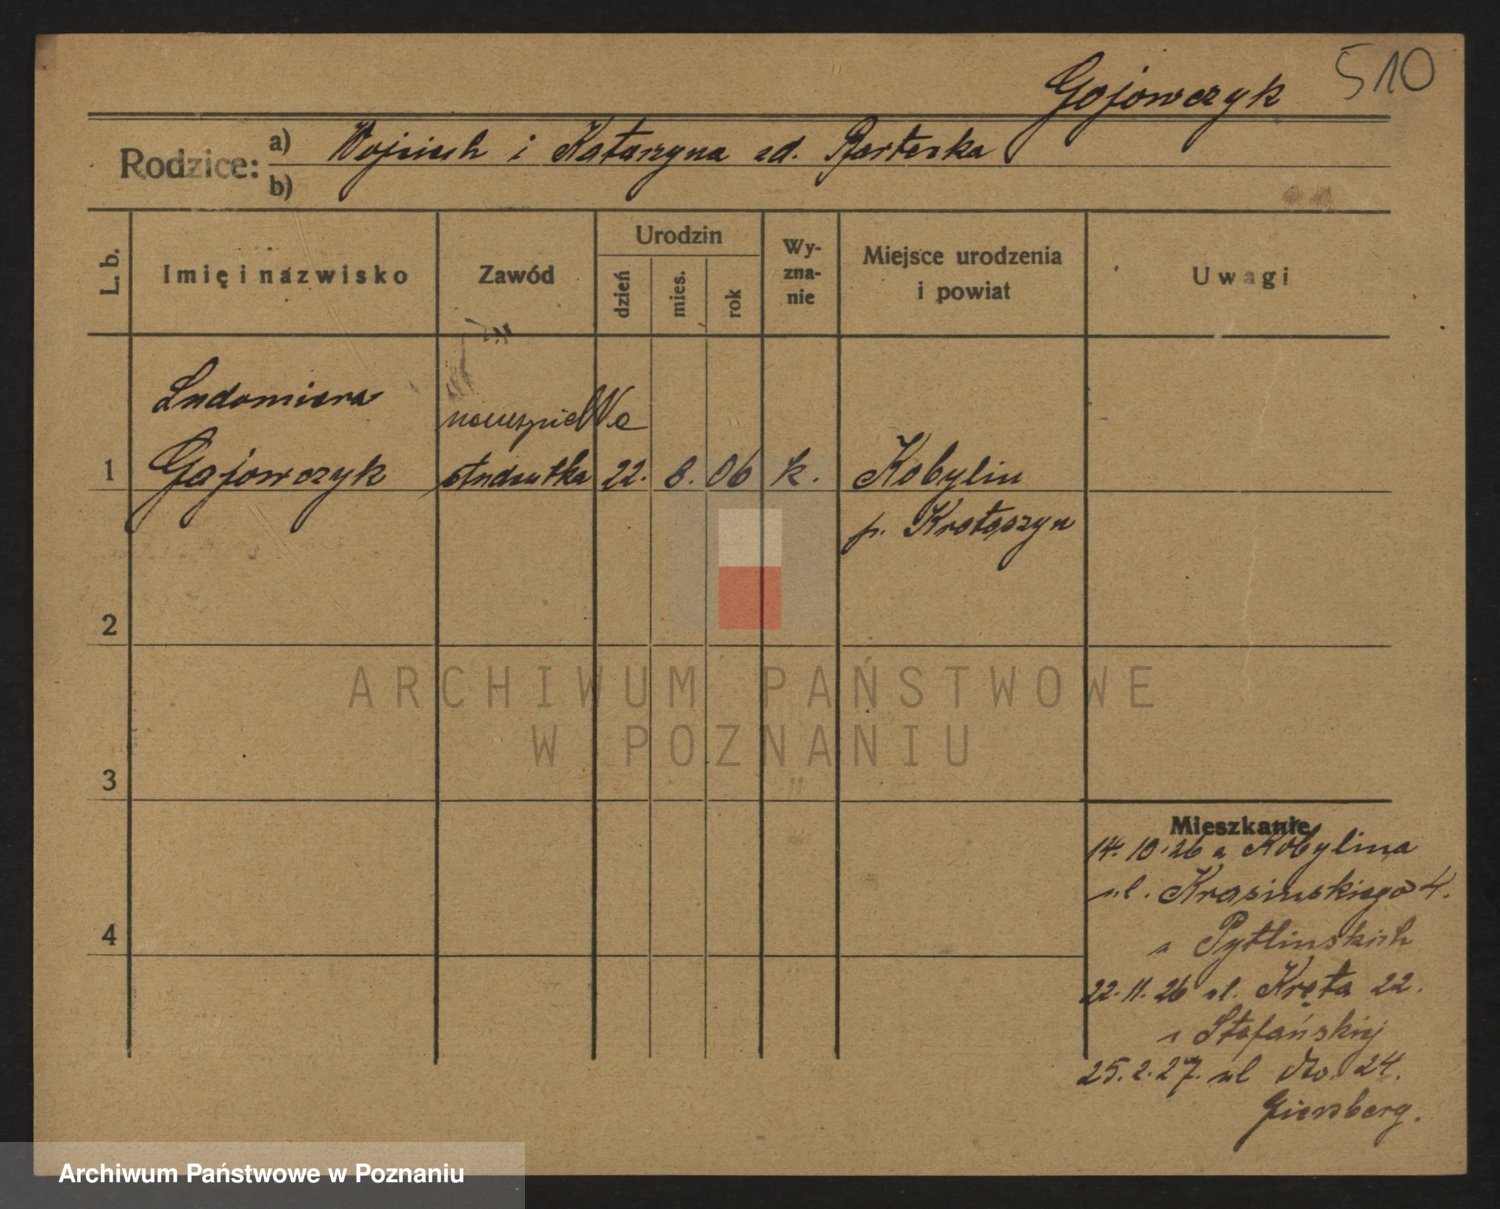 Gojowczyk 510
Rodzice: a) Wojciech i Katarzyna zd.
b)
L. b.
Imię i nazwisko
Zawód
Urodzin
dzień
mies.
rok
Wy-
zna-
nie
Miejsce urodzenia
i powiat
Uwagi
Ludomiera
nauczycielka
1 Gojowczyk studentka 22. 8. 06 k. Kobylin
p. Krotoszyn
2
3
4
Mieszkanie
14.10.26 z Kobylina
ul. Krasińskiego 4.
u Pytlińskich
22.11.26 ul. Kręta 22.
u Stefańskiej
25.2.27. ul 24.
Giersberg.
ARCHIWUM PAŃSTWOWE
W POZNANIU
Archiwum Państwowe w Poznaniu